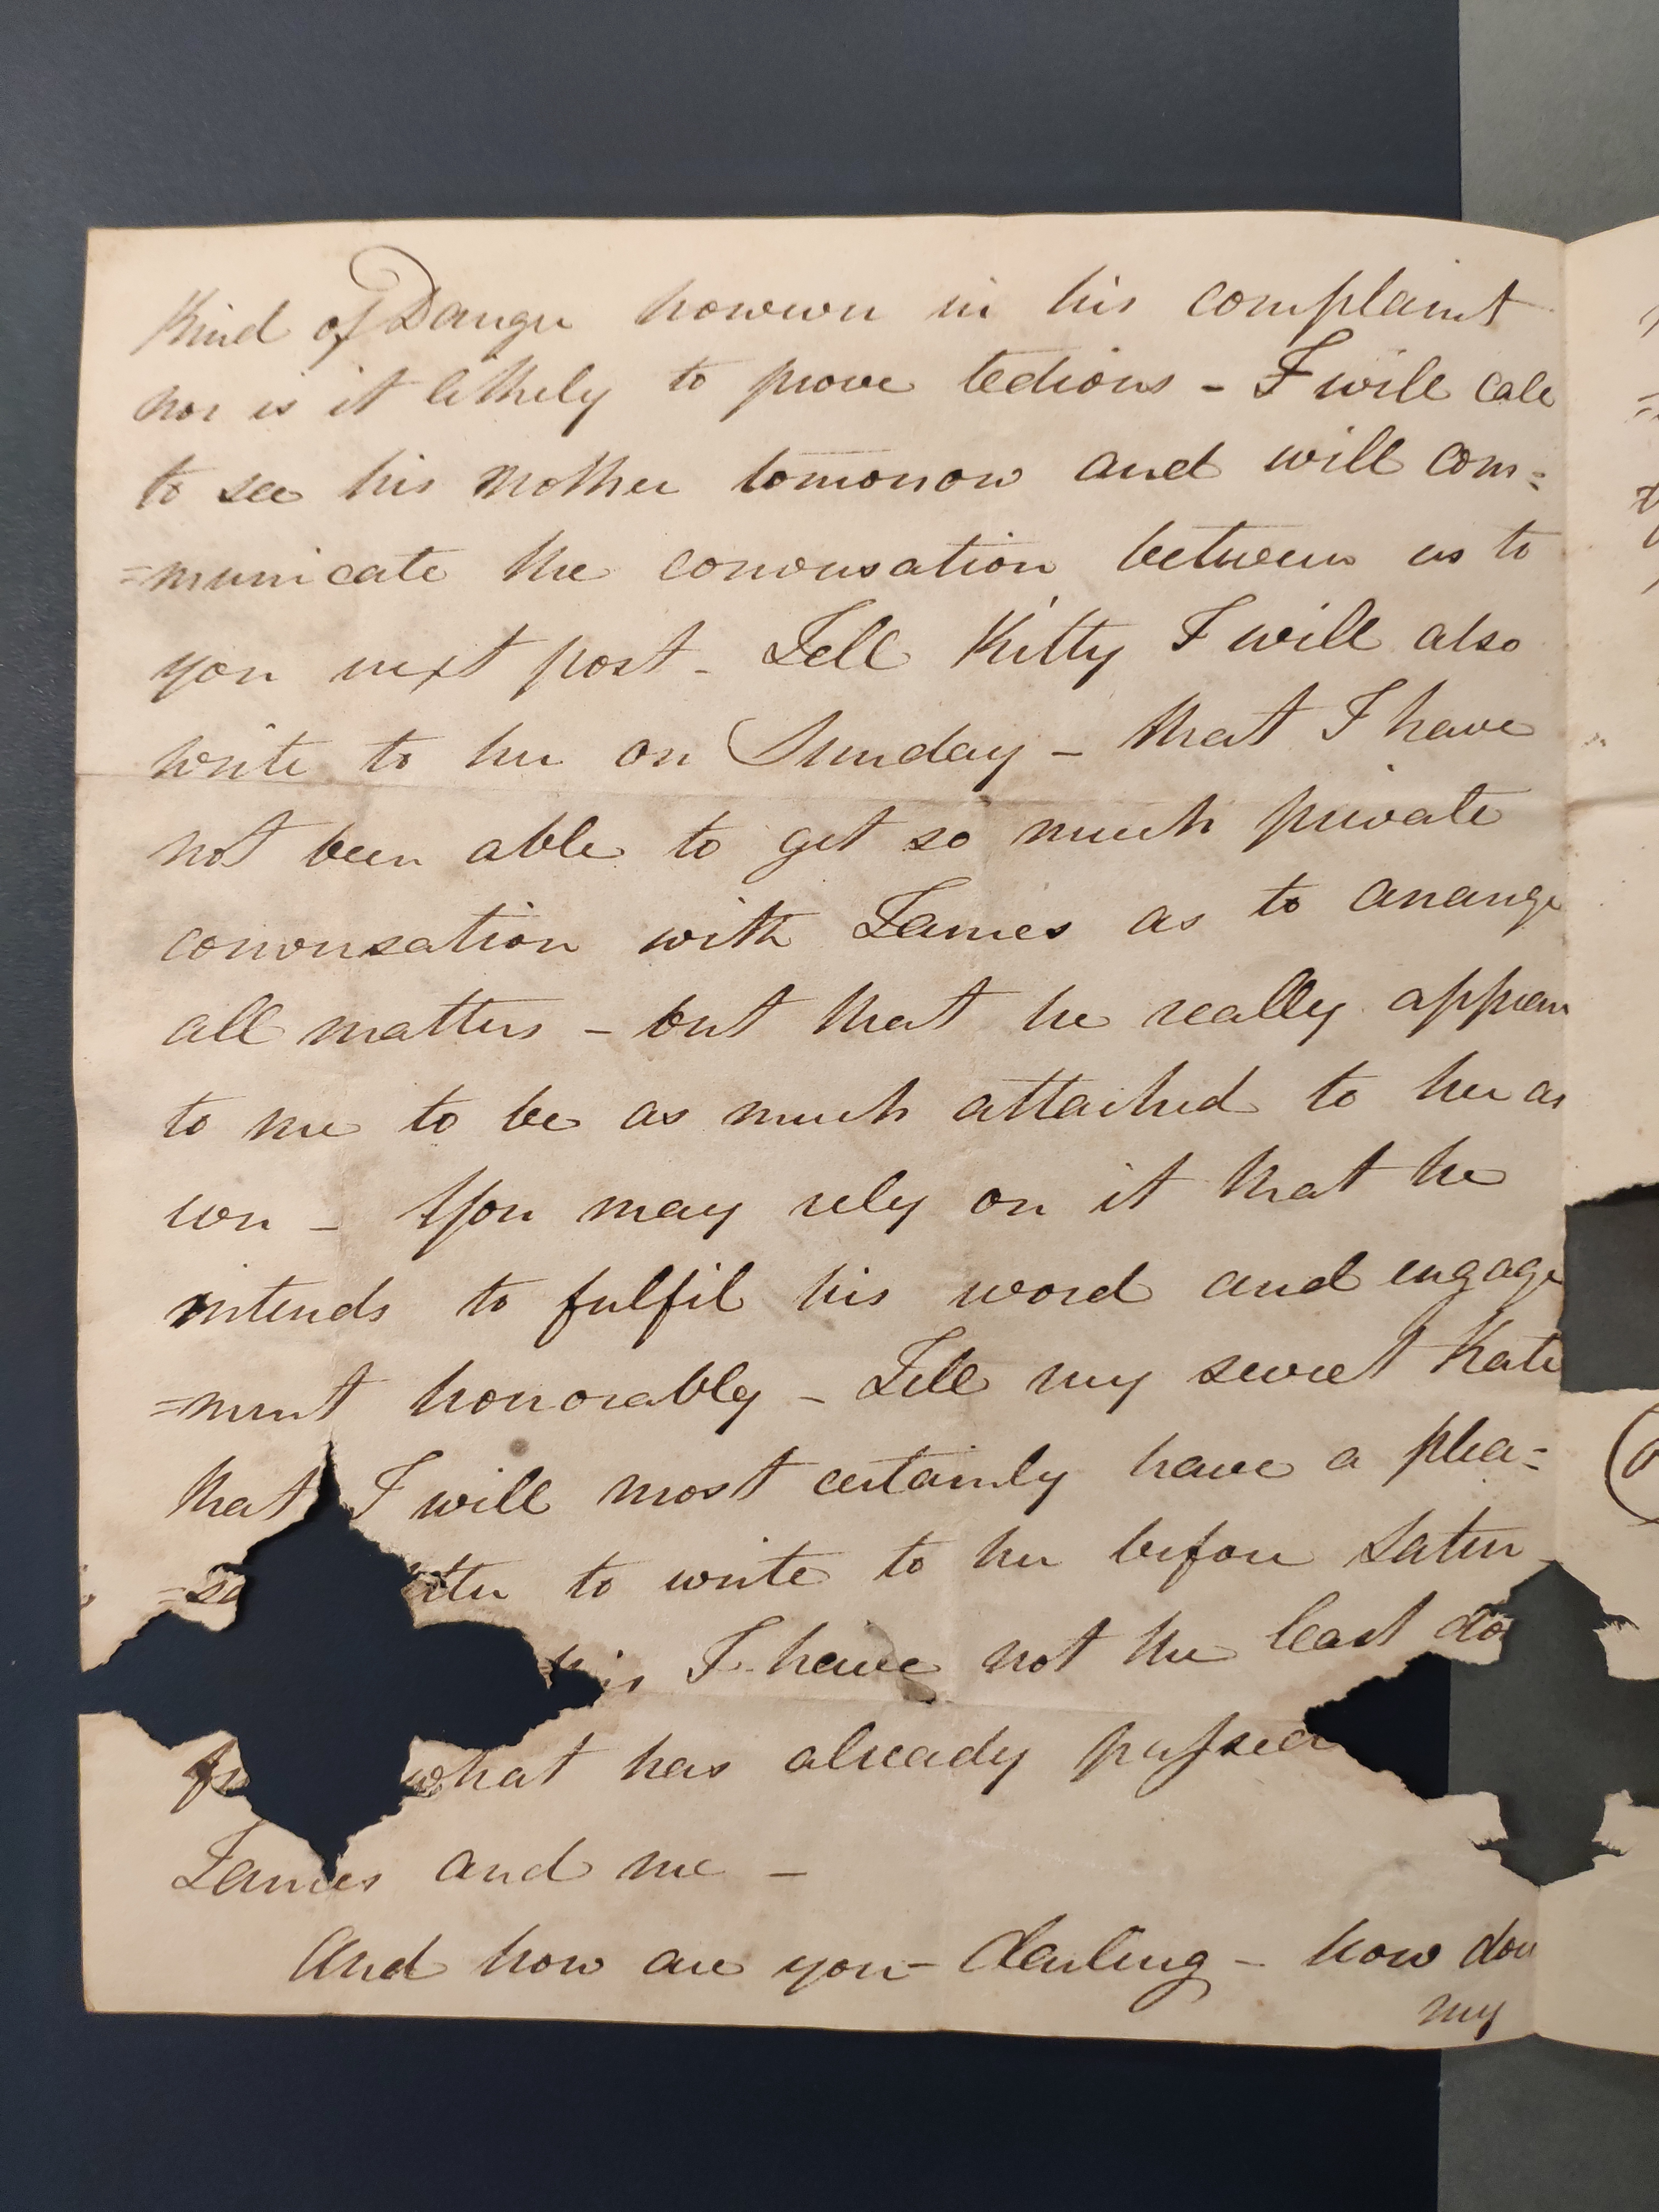 Kind of Danger however in his complaint
nor is it likely to prove tedious - I will call
to see his Mother tomorrow and will com=
=municate the conversation between us to
you next post - Tell Kitty I will also
write to her on Sunday - that I have
not been able to get so much private
conversation with James as to arrange
all matters - but that he really appears
to me to be as much attached to her as
ever - You may rely on it that he
intends to fulfil his word and engage
=ment honorably - Tell my sweet Kate
that I will most certainly have a plea=
=sa tter to write to her before Satur
his I have not the least do
what has already passed
James and me -
And how are you - darling - how does
my